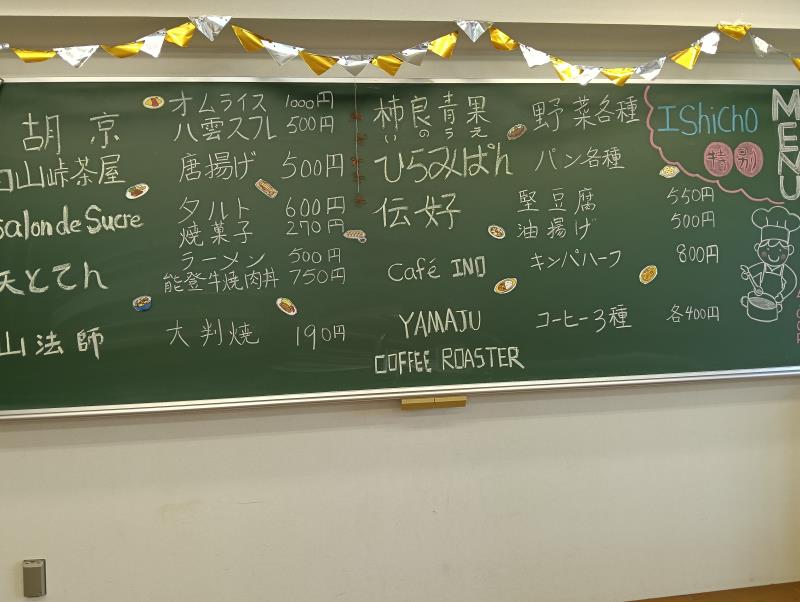 胡京 オムライス 1000円
八雲スフレ 500円
白山峠茶屋 唐揚げ 500円
salon de Sucre タルト 600円
焼菓子 270円
矢とてん ラーメン 500円
能登牛焼肉丼 750円
山法師 大判焼 190円
柿良青果 野菜各種
いのうえ
ひらみぱん パン各種
伝好 堅豆腐 550円
油揚げ 500円
Café IND キンパハーフ 800円
YAMAJU コーヒー3種 各400円
COFFEE ROASTER
IShicho
特別
MENU